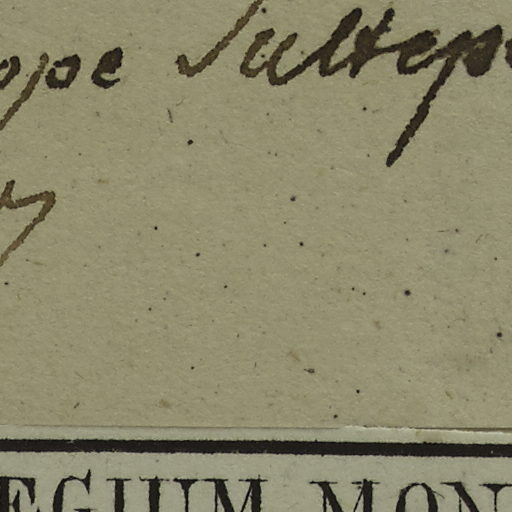 ope Sultepe
EGIUM MON